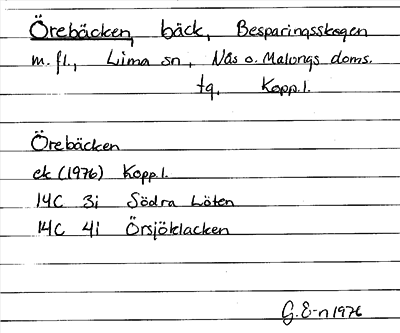 Örebäcken, bäck, Besparingsskogen
m.fl., Lima sn, Nås o. Malungs doms.
tg, Kopp.l.
Örebäcken
ek (1976) Kopp.l.
14C 3i Södra Löten
14C 4i Örsjöklacken
G.E-n 1976